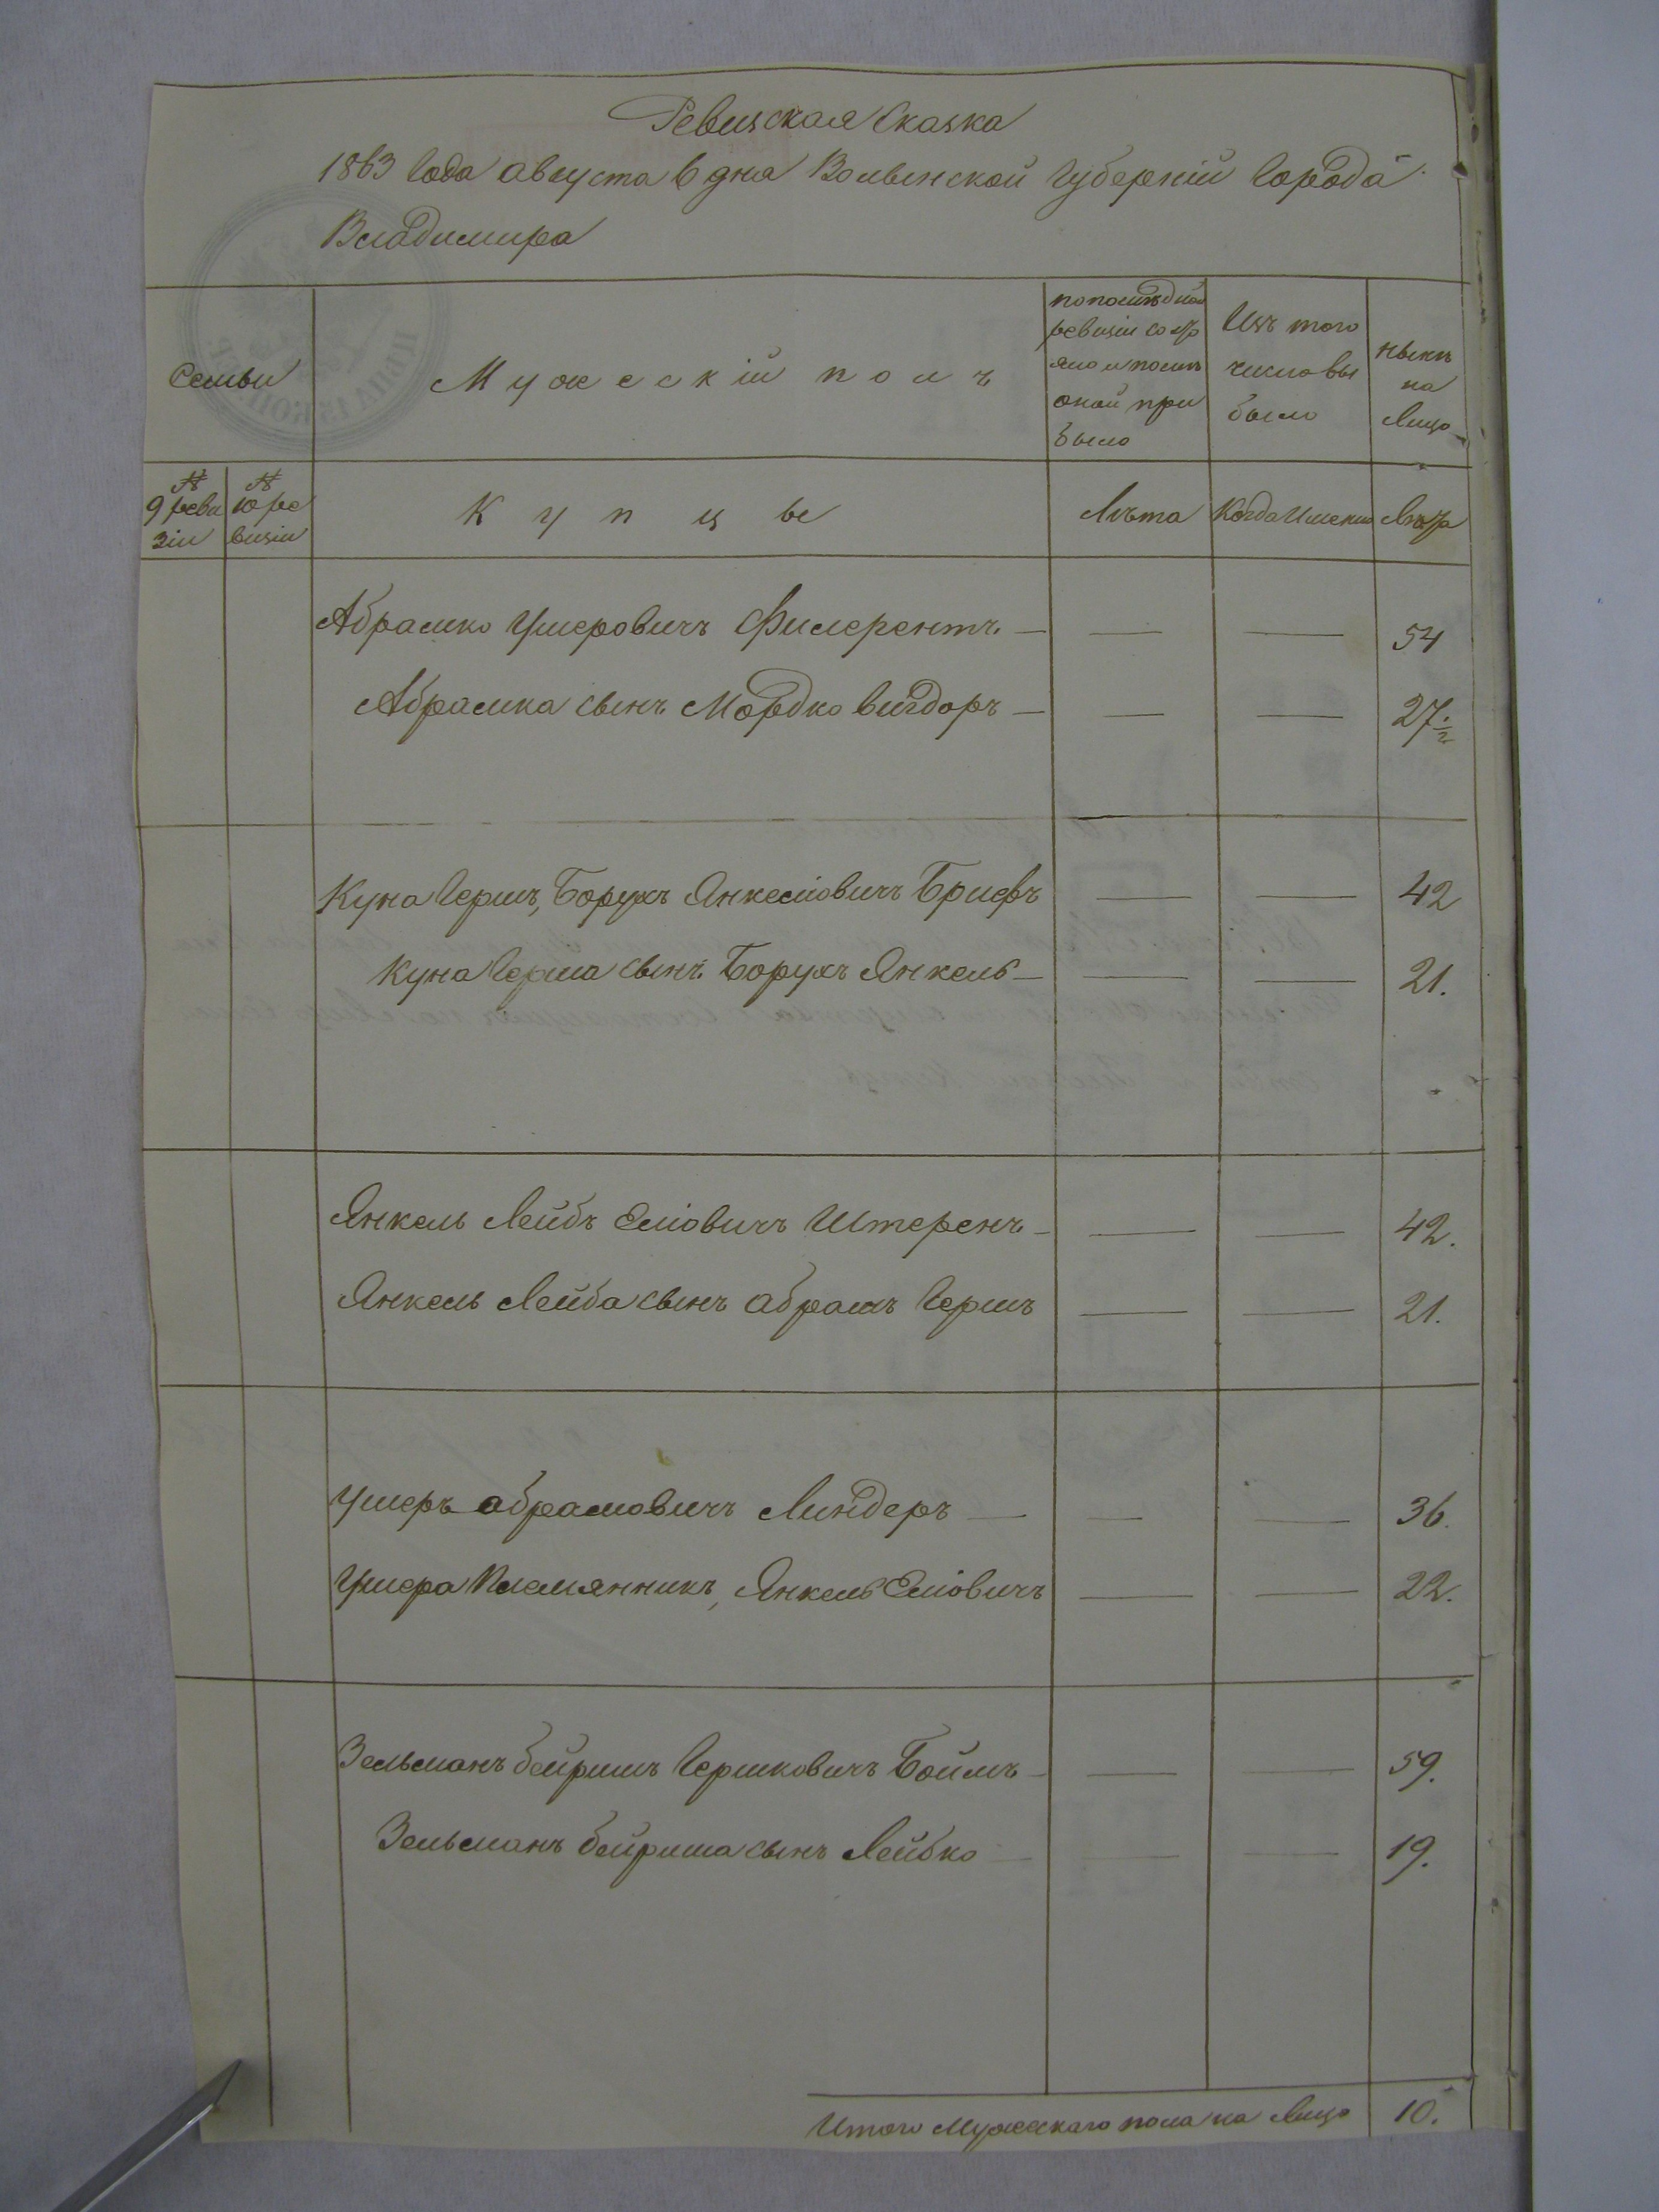 Ревизская Сказка
1863 Года августа 6 дня Волынской Губерніи Города
Владимира
Семьи
Мужескій полъ
по последней
ревизіи состо
яло и после
оной при
было
Изъ того
числа вы
было
ныне
на
Лицо
№
9 реви
зіи
№
10 ре
визіи
Купцы
Лѣта
Когда Именно
Лѣта
Абрамко Ушеровичъ Филерентъ — — — 54
Абрамка сынъ Мордко Вигдоръ — — — 27 ½
Куна Гершъ, Борухъ Янкеліовичъ Брифъ — — 42
Куна Герша сынъ Борухъ Янкель — — — 21.
Янкель Лейбъ Еліовичъ Штеренъ — — — 42.
Янкель Лейба сынъ Абрамъ Гершъ — — 21.
Ушеръ Абрамовичъ Линдеръ — — — 36.
Ушера Племянникъ, Янкель Еліовичъ — — 22.
Зельманъ Бейришъ Гершковичъ Боймъ — — — 59.
Зельманъ Бейриша сынъ Лейбко — — — 19.
Итого Мужескаго пола на Лицо 10.